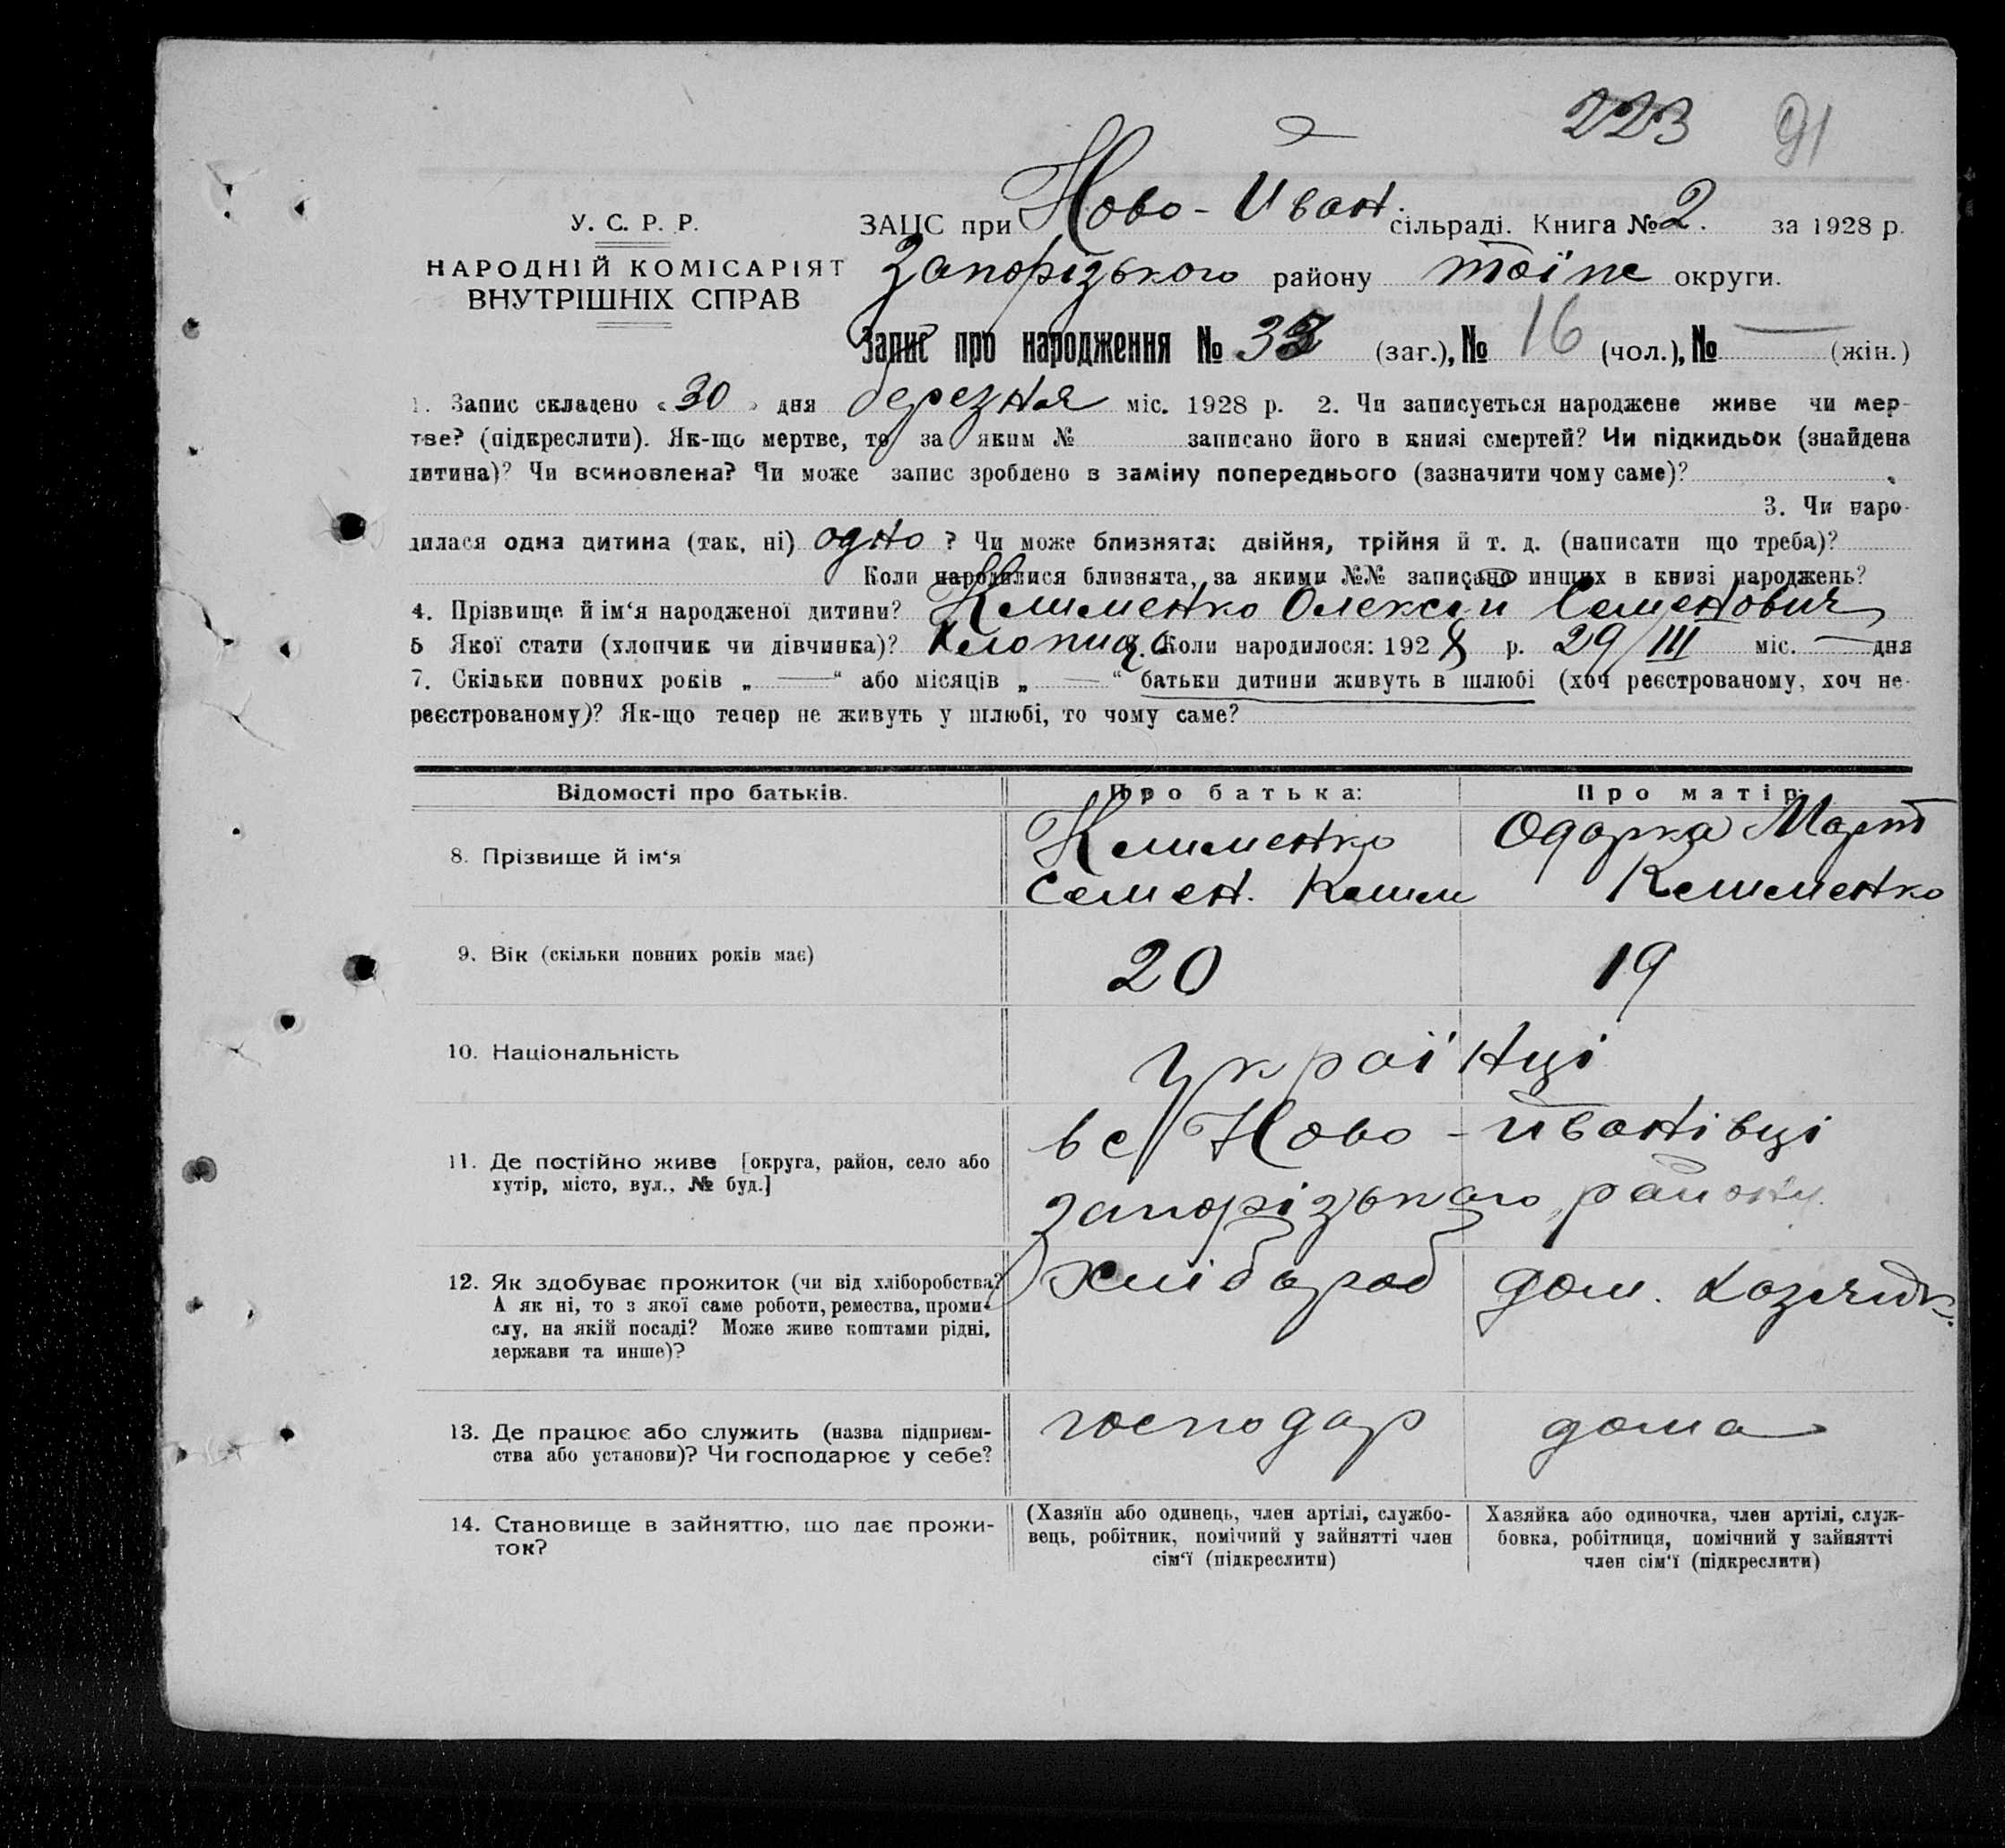 223 91
У. С. Р. Р.
НАРОДНІЙ КОМІСАРІЯТ
ВНУТРІШНІХ СПРАВ
ЗАЦС при Ново-Иван. сільраді. Книга № 2. за 1928 р.
Запорізького району тоїж округи.
Запис про народження № (заг.), № 16 (чол.), № — (жін.)
1. Запис складено «30» дня березня міс. 1928 р. 2. Чи записується народжене живе чи мер-
тве? (підкреслити). Як-що мертве, то за яким № записано його в книзі смертей? Чи підкидьок (знайдена
дитина)? Чи всиновлена? Чи може запис зроблено в заміну попереднього (зазначити чому саме)?
3. Чи наро-
дилася одна дитина (так, ні) одно ? Чи може близнята: двійня, трійня й т. д. (написати що треба)?
Коли народилися близнята, за якими №№ записано инших в книзі народжень?
4. Прізвище й ім‘я народженої дитини? Клименко Олексій Семенович
5 Якої стати (хлопчик чи дівчинка)? Хлопиц. Коли народилося: 1928 р. 29/III міс. — дня
7. Скільки повних років „ — “ або місяців „ — “ батьки дитини живуть в шлюбі (хоч реєстрованому, хоч не-
реєстрованому)? Як-що тепер не живуть у шлюбі, то чому саме?
Відомості про батьків. Про батька: Про матір:
8. Прізвище й ім‘я Клименко Одарка Март
Семен. Клим Клименко
9. Вік (скільки повних років має) 20 19
10. Національність Українці
11. Де постійно живе [округа, район, село або
хутір, місто, вул., № буд.] в с/ Ново-иванівці
запорізького району.
12. Як здобуває прожиток (чи від хліборобства? Хлібороб дом.
А як ні, то з якої саме роботи, ремества, проми-
слу, на якій посаді? Може живе коштами рідні,
держави та инше)?
13. Де працює або служить (назва підприєм- господар дома
ства або установи)? Чи господарює у себе?
14. Становище в зайняттю, що дає прожи-
ток? (Хазяїн або одинець, член артілі, службо- Хазяйка або одиночка, член артілі, служ-
вець, робітник, помічний у зайнятті член бовка, робітниця, помічний у зайнятті
сім‘ї (підкреслити) член сім‘ї (підкреслити)